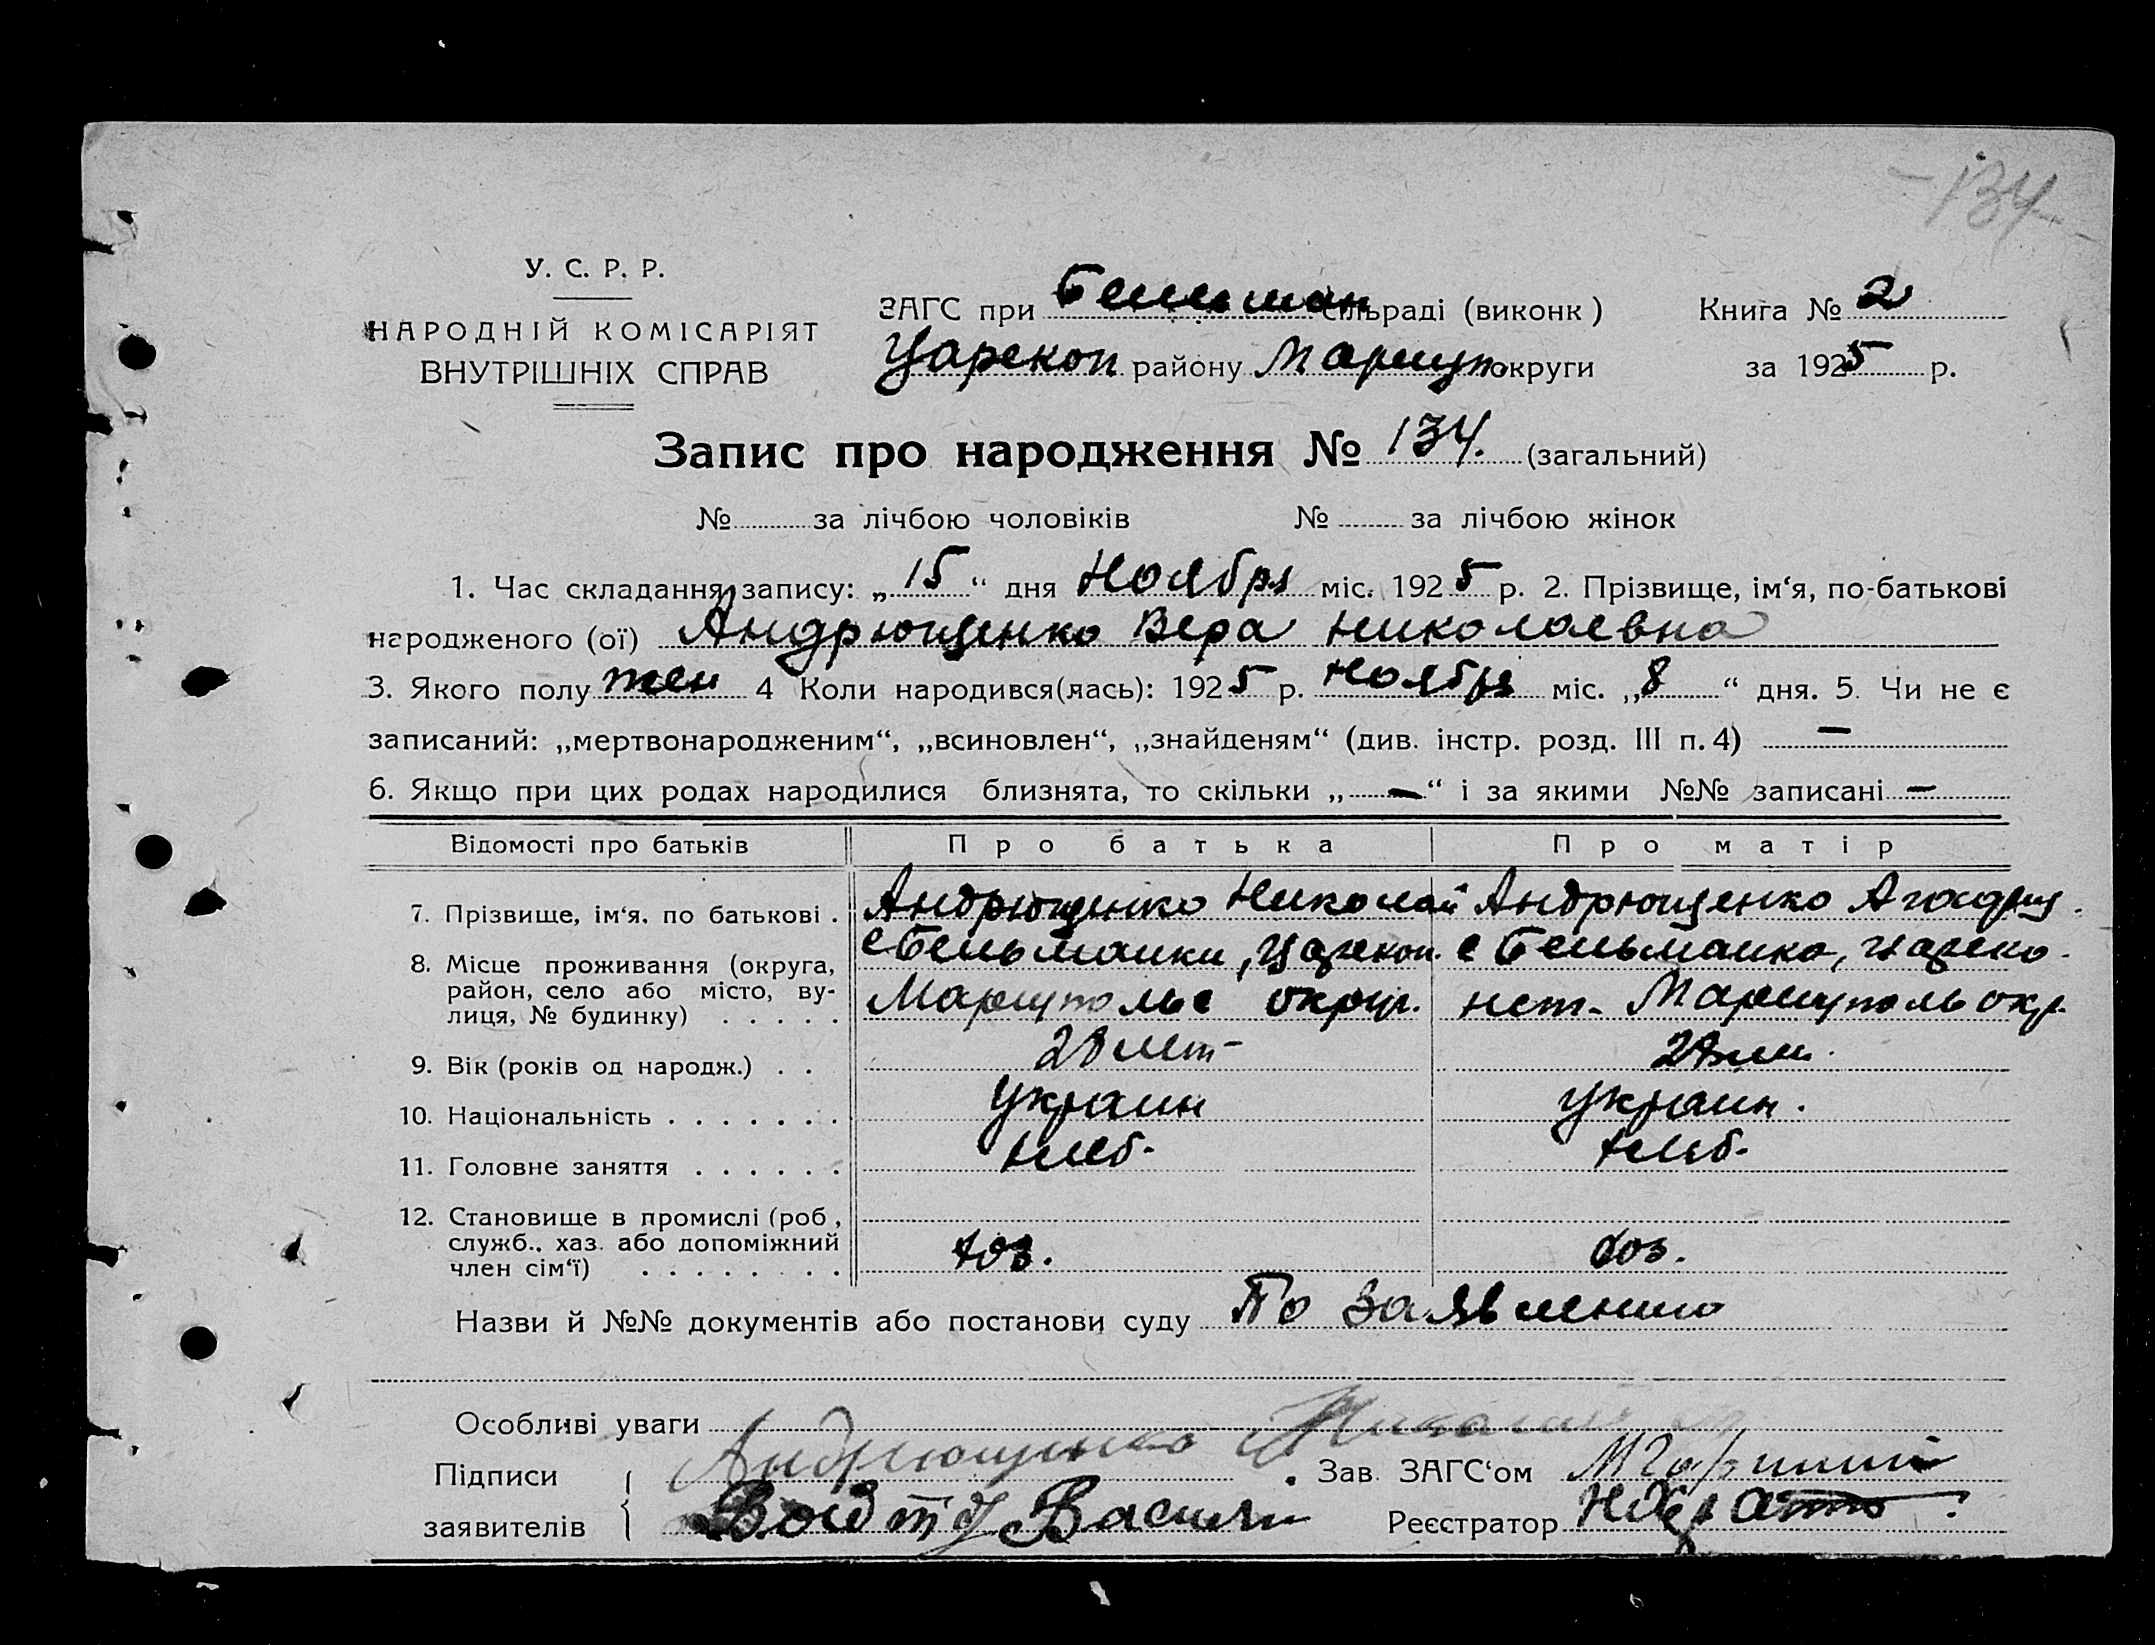 -134-
У. С. Р. Р.
НАРОДНІЙ КОМІСАРІЯТ
ВНУТРІШНІХ СПРАВ
ЗАГС при Бельман сільраді (виконк) Книга № 2
Царекон району Мариуп. округи за 1925 р.
Запис про народження № 134. (загальний)
№ за лічбою чоловіків № за лічбою жінок
1. Час складання запису: „15“ дня Ноября міс. 1925 р. 2. Прізвище, ім‘я, по-батькові
народженого (ої) Андрющенко Вера Николаевна
3. Якого полу жен 4 Коли народився(лась): 1925 р. Ноября міс. „8“ дня. 5. Чи не є
записаний: „мертвонародженим“, „всиновлен“, „знайденям“ (див. інстр. розд. III п. 4) —
6. Якщо при цих родах народилися близнята, то скільки „—“ і за якими №№ записані —
Відомості про батьків Про батька Про матір
7. Прізвище, ім‘я, по батькові . Андрющенко Николай Андрющенко
8. Місце проживання (округа, с Бельманки, Царекон. с Бельманка, Царено-
район, село або місто, ву-
лиця, № будинку) . . . . . Мариупольс округ. нст. Мариуполь окр.
9. Вік (років од народж.) . . 28 лет
10. Національність . . . . . . . Украин Украин.
11. Головне заняття . . . . . . Хлеб. Хлеб.
12. Становище в промислі (роб,
служб., хаз. або допоміжний
член сім‘ї) . . . . . . . хоз. хоз.
Назви й №№ документів або постанови суду По заявлению
Особливі уваги
Підписи Андрющенко Николай Зав. ЗАГС‘ом
заявителів Василий Реєстратор